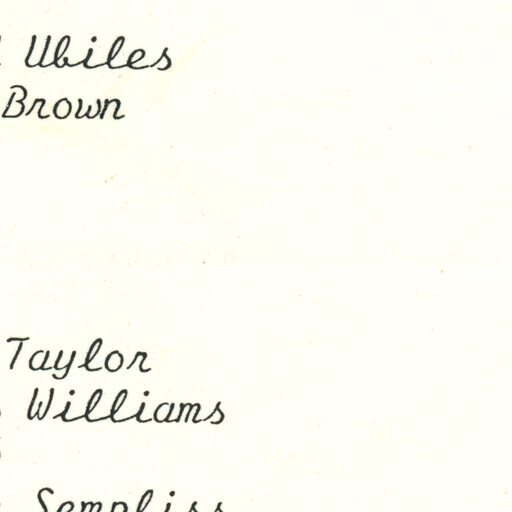 Ubiles
Brown
Taylor
Williams
Sempliss